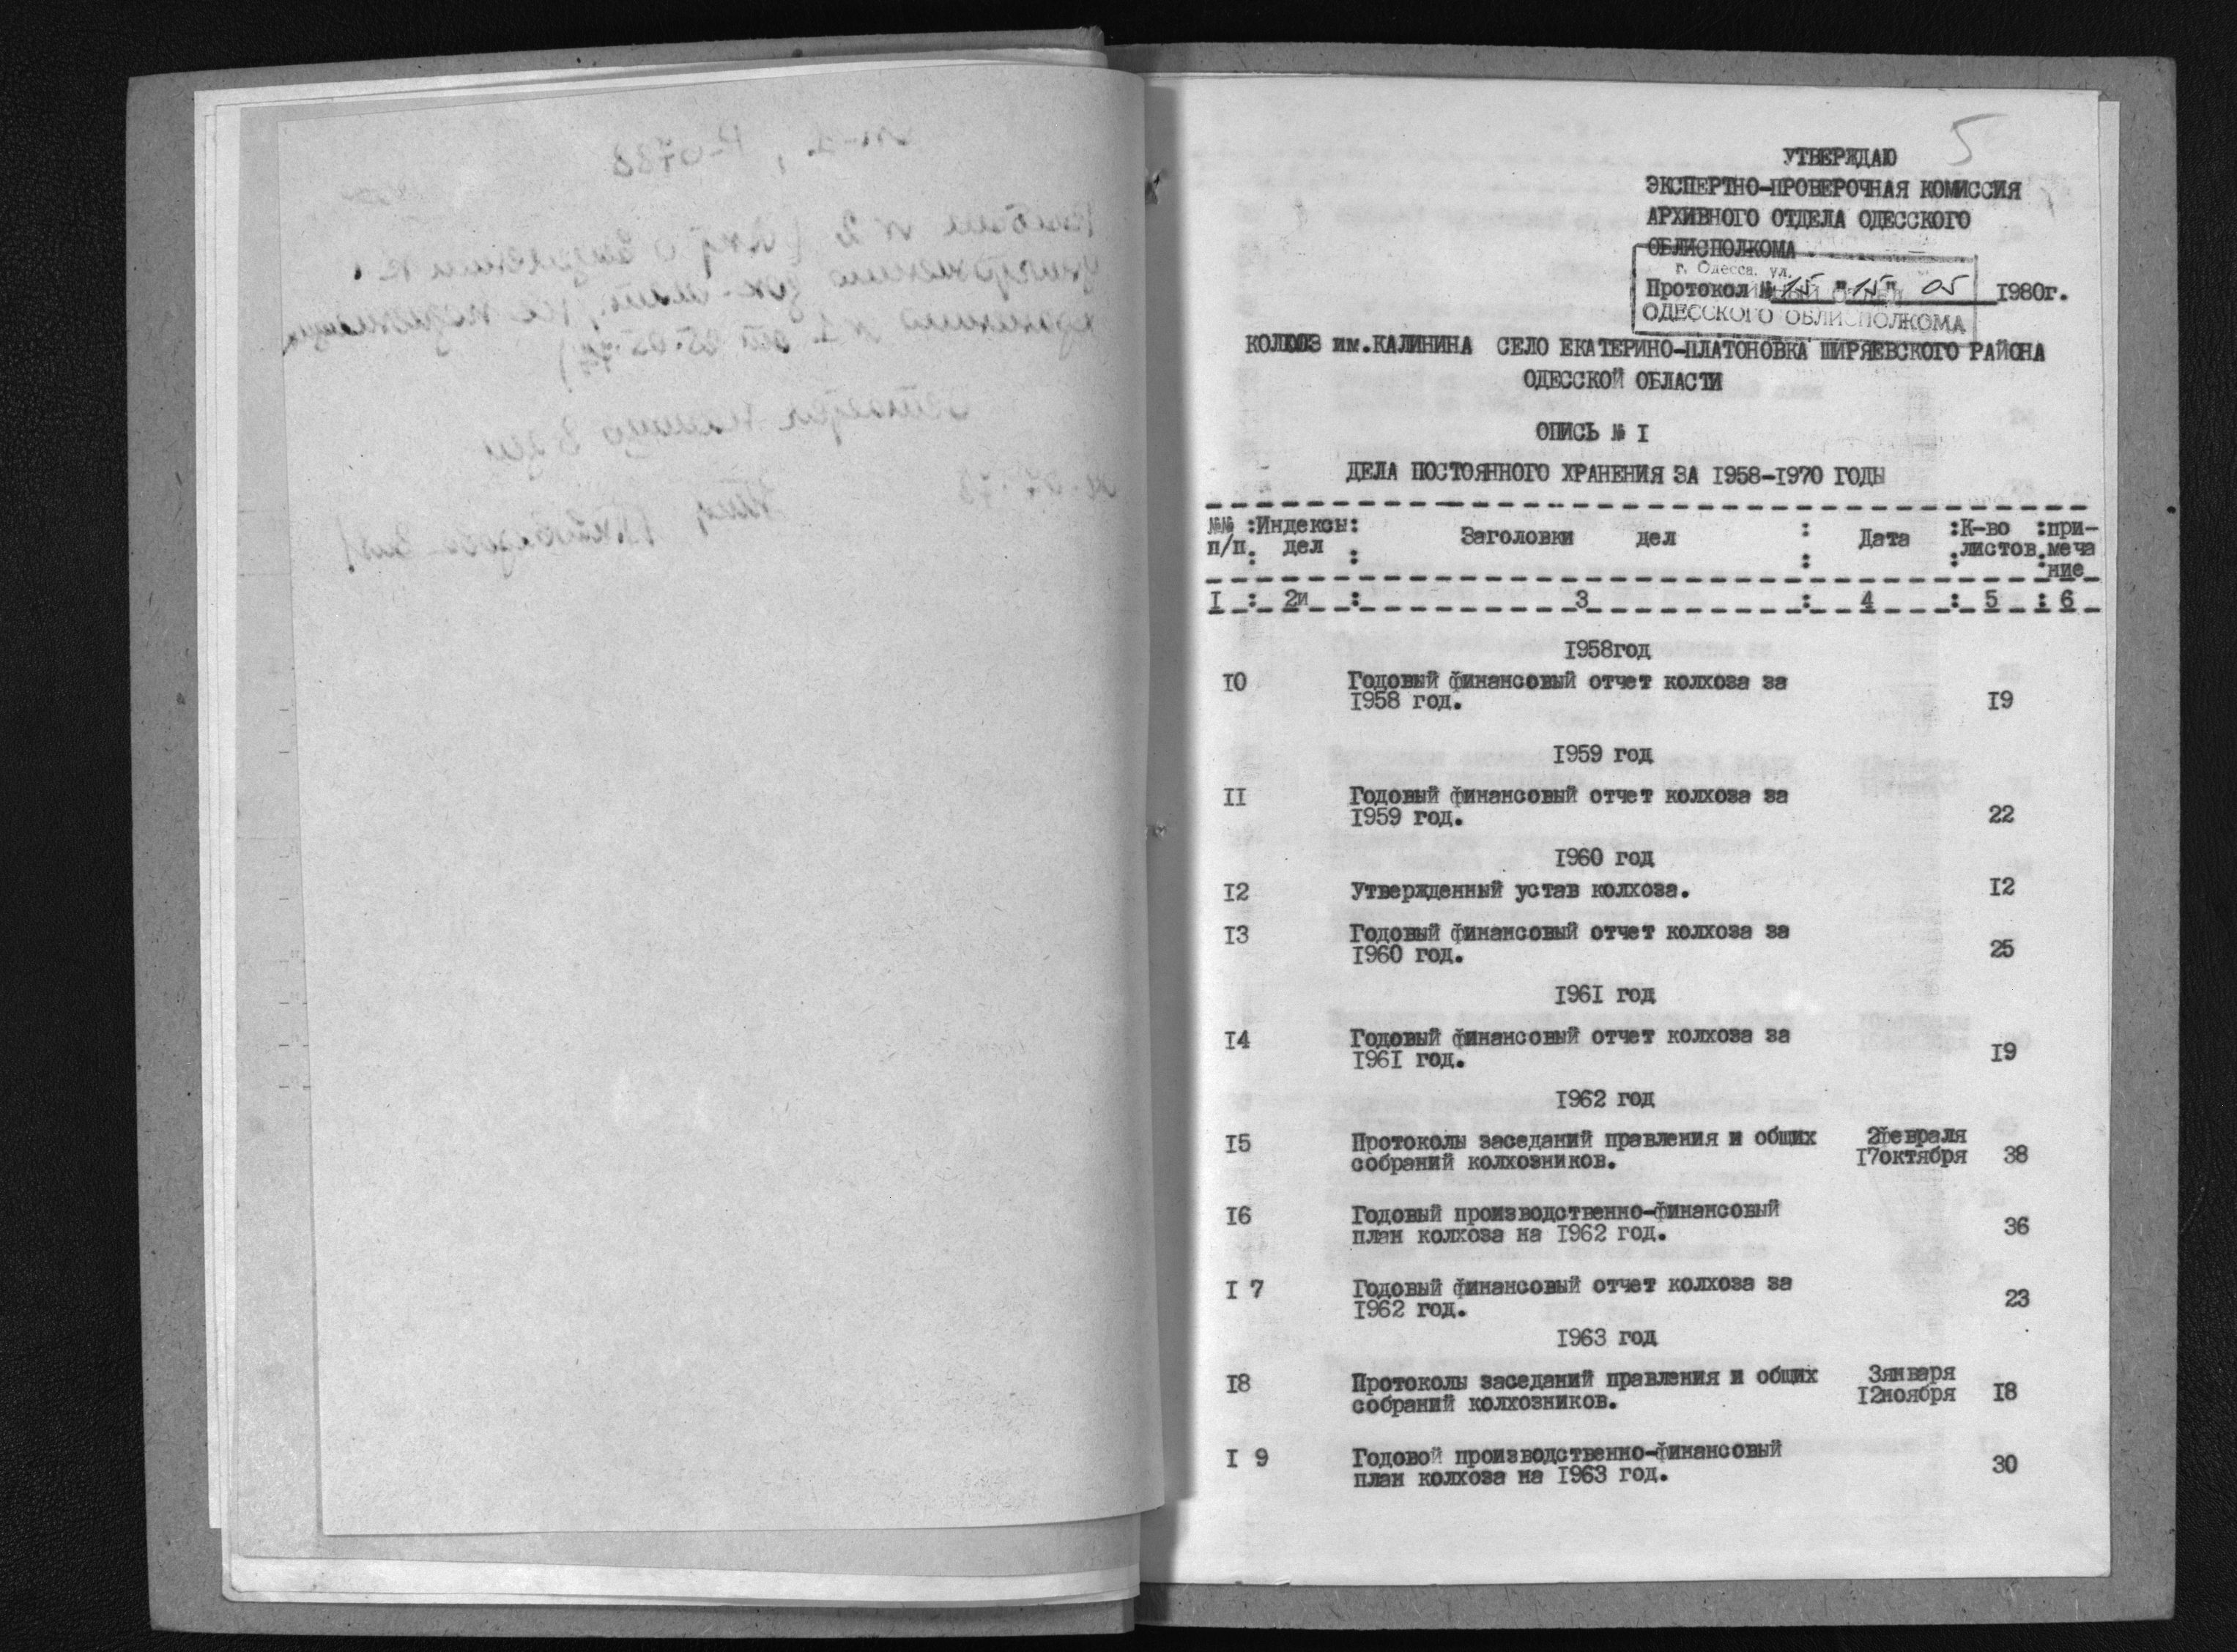 5
УТВЕРЖДАЮ
ЭКСПЕРТНО-ПРОВЕРОЧНАЯ КОМИССИЯ
АРХИВНОГО ОТДЕЛА ОДЕССКОГО
ОБЛИСПОЛКОМА
г. Одесса, ул.
Протокол № 15 "15" 05 1980г.
ОДЕССКОГО ОБЛИСПОЛКОМА
КОЛХОЗ им.КАЛИНИНА СЕЛО ЕКАТЕРИНО-ПЛАТОНОВКА ШИРЯЕВСКОГО РАЙОНА
ОДЕССКОЙ ОБЛАСТИ
ОПИСЬ № I
ДЕЛА ПОСТОЯННОГО ХРАНЕНИЯ ЗА I958-I970 ГОДЫ
№№ :Индексы: Заголовки дел : Дата :К-во :при-
п/п. дел : : :листов.меча
:ние
I : 2и : 3 : 4 : 5 : 6
I958год
IO Годовый финансовый отчет колхоза за
I958 год. I9
I959 год
II Годовый финансовый отчет колхоза за
I959 год. 22
I960 год
I2 Утвержденный устав колхоза. I2
I3 Годовый финансовый отчет колхоза за
I960 год. 25
I96I год
I4 Годовый финансовый отчет колхоза за
I96I год. I9
I962 год
I5 Протоколы заседаний правления и общих 2февраля
собраний колхозников. I7октября 38
I6 Годовый производственно-финансовый
план колхоза на I962 год. 36
I 7 Годовый финансовый отчет колхоза за
I962 год. 23
I963 год
I8 Протоколы заседаний правления и общих 3января
собраний колхозников. I2ноября I8
I 9 Годовой производственно-финансовый
план колхоза на I963 год. 30